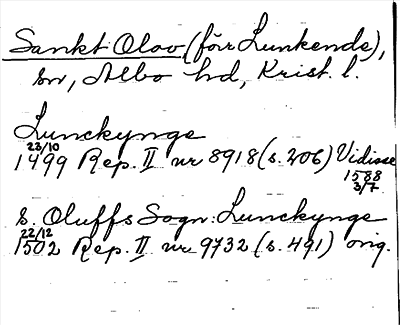 Sankt Olov (för Lunkende),
sn, Albo hd, Krist. l.
Lunckynge
23/10
1499 Rep. II nr 8918 (s. 206) Vidisse
1588
3/7
S. Oluffs Sogn: Lunckynge
22/12
1502 Rep. II nr 9732 (s. 491) orig.